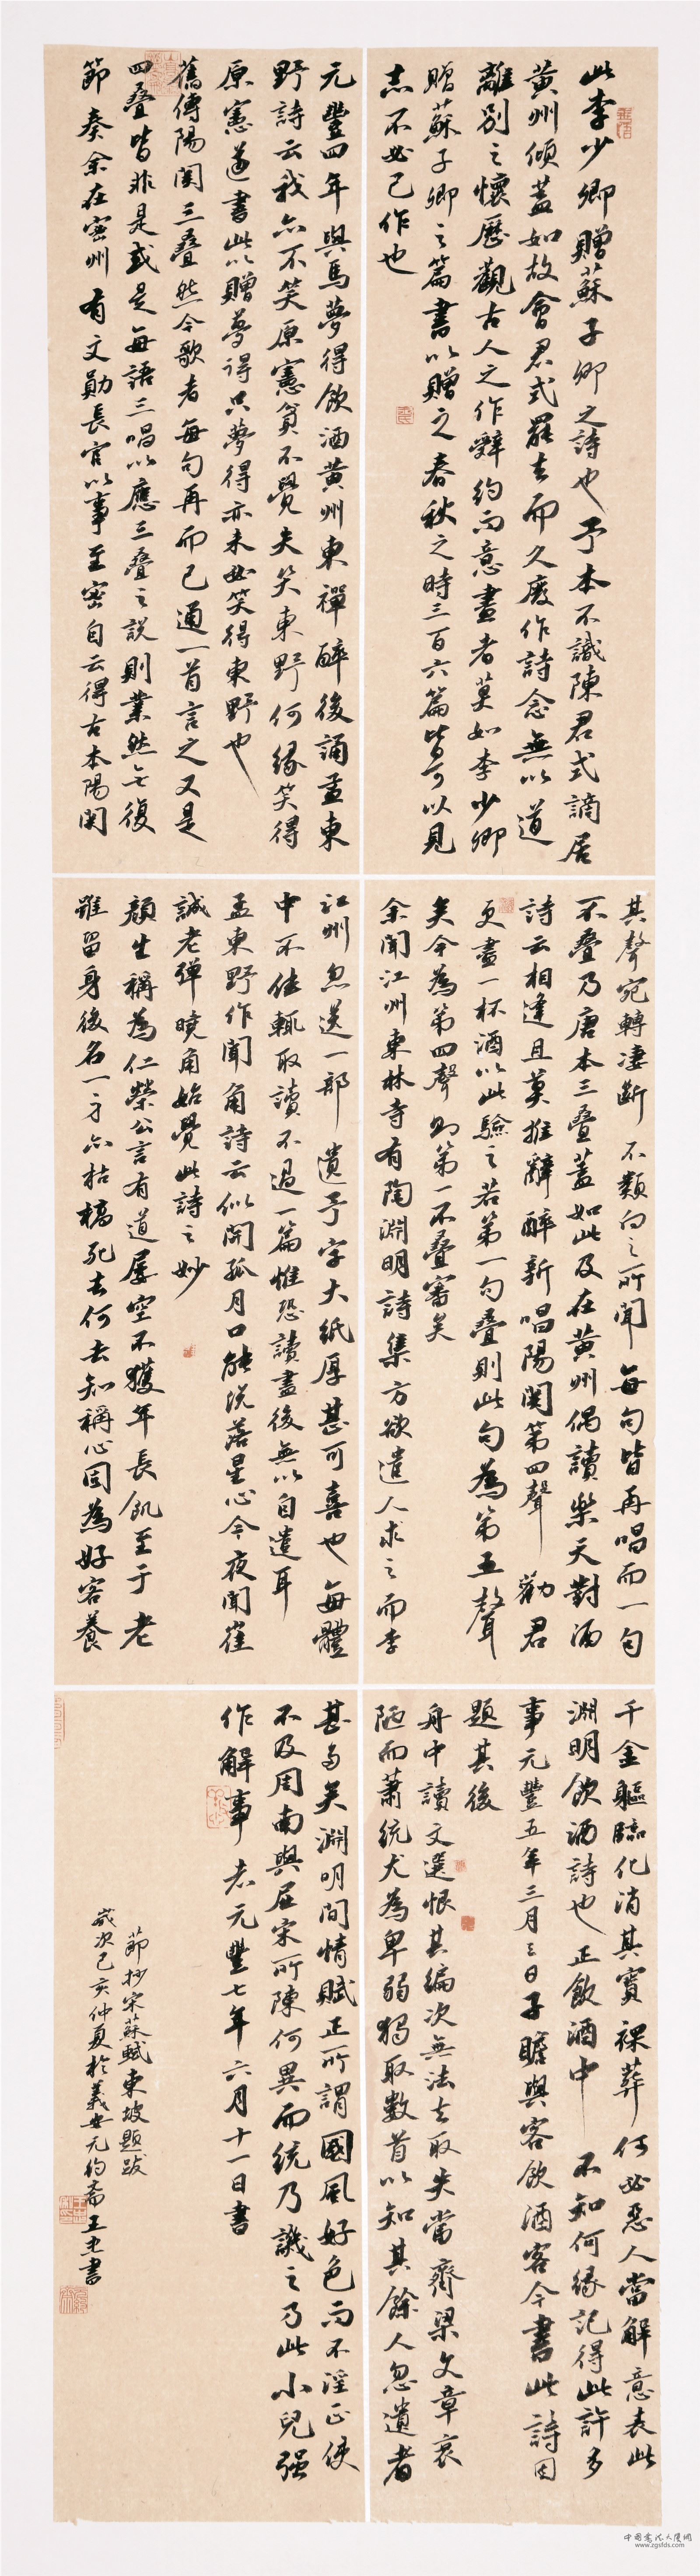 此李少卿贈蘇子卿之詩也予本不識陳君式謫居
黃州傾蓋如故會君式罷去而久廢作詩念無以道
離別之懷歷觀古人之作辭約而意盡者莫如李少卿
贈蘇子卿之篇書以贈之春秋之時三百六篇皆可以見
志不必己作也
元豐四年與馬夢得飲酒黃州東禪醉後誦孟東
野詩云我亦不笑原憲貧不覺失笑東野何緣笑得
原憲遂書此以贈夢得只夢得亦未必笑得東野也
舊傳陽関三疊然今歌者每句再而已通一首言之又是
四疊皆非是或是每語三唱以應三疊之說則業然無復
節奏余在密州有文勛長官以事至密自云得古本陽関
其聲宛轉淒斷不類向之所聞每句皆再唱而一句
不疊乃唐本三疊蓋如此及在黃州偶讀樂天對酒
詩云相逢且莫推辭醉新唱陽関第四聲勸君
更盡一杯酒以此驗之若第一句疊則此句為第五聲
矣今為第四聲則第一不疊審矣
余聞江州東林寺有陶淵明詩集方欲遣人求之而李
江州忽送一部遺予字大紙厚甚可喜也每體
中不佳輒取讀不過一篇惟恐讀盡後無以自遣耳
孟東野作聞角詩云似開孤月口能說落星心今夜聞崔
誠老弹曉角始覺此詩之妙
顏生稱為仁榮公言有道屢空不獲年長飢至于老
雖留身後名一才亦枯槁死去何去知稱心固為好客養
千金軀臨化消其寶裸葬何必惡人當解意表此
淵明飲酒詩也正飲酒中不知何緣記得此許多
事元豐五年三月三日子瞻與客飲酒客令書此詩因
題其後
舟中讀文選恨其編次無法去取失當齊梁文章衰
陋而蕭統尤為卑弱獨取數首以知其餘人忽遺者
甚多矣淵明閒情賦正所謂國風好色而不淫正使
不及周南與屈宋所陳何異而統乃譏之乃此小兒强
作解事者元豐七年六月十一日書
節抄宋蘇軾東坡題跋
歲次己亥仲夏於義安元約齋王書
中国书法大厦网
www.zgsfds.com